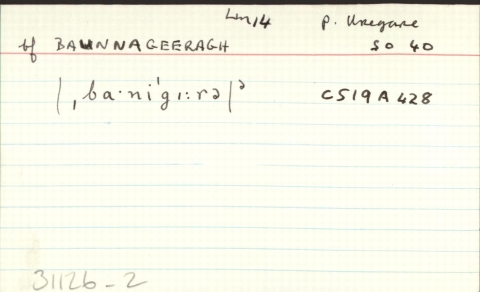 Lm 14 P. Uregare
bf BAUNNAGEERAGH SO 40
|ˌba·niˈgɪːrə|ᵊ CS19A428
31126-2